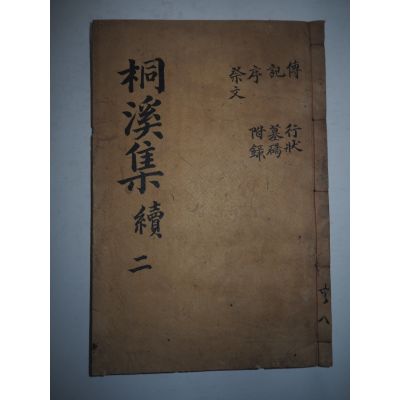 傳 行狀
記 墓碣
序 附錄
祭文
桐溪集 續 二
八